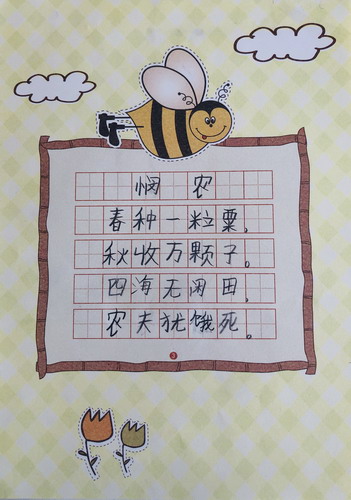 悯农
春种一粒粟,
秋收万颗子。
四海无闲田,
农夫犹饿死。
3